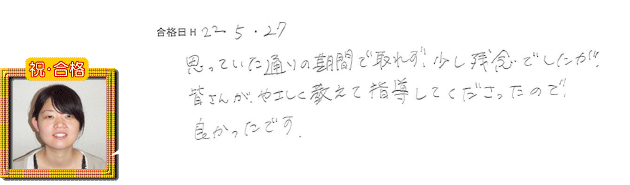 合格日 H 22・5・27
祝・合格
思っていた通りの期間で取れず、少し残念でしたが、
皆さんが、やさしく教えて指導してくださったので、
良かったです。